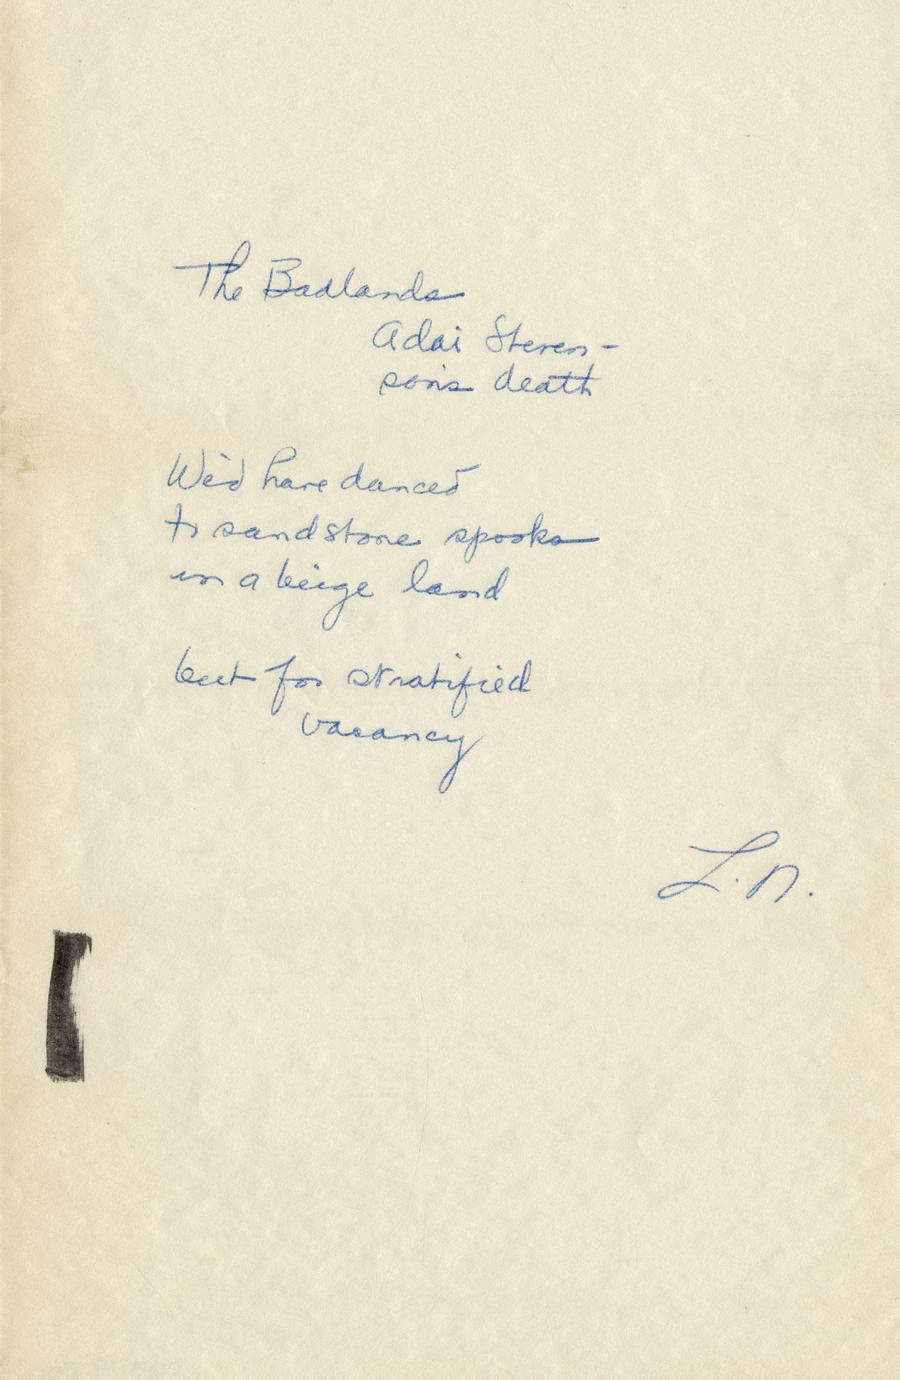 The Badlands
Adai Steven-
son's death
We'd have danced
to sandstone spooks
in a beige land
but for stratified
vacancy
L.N.